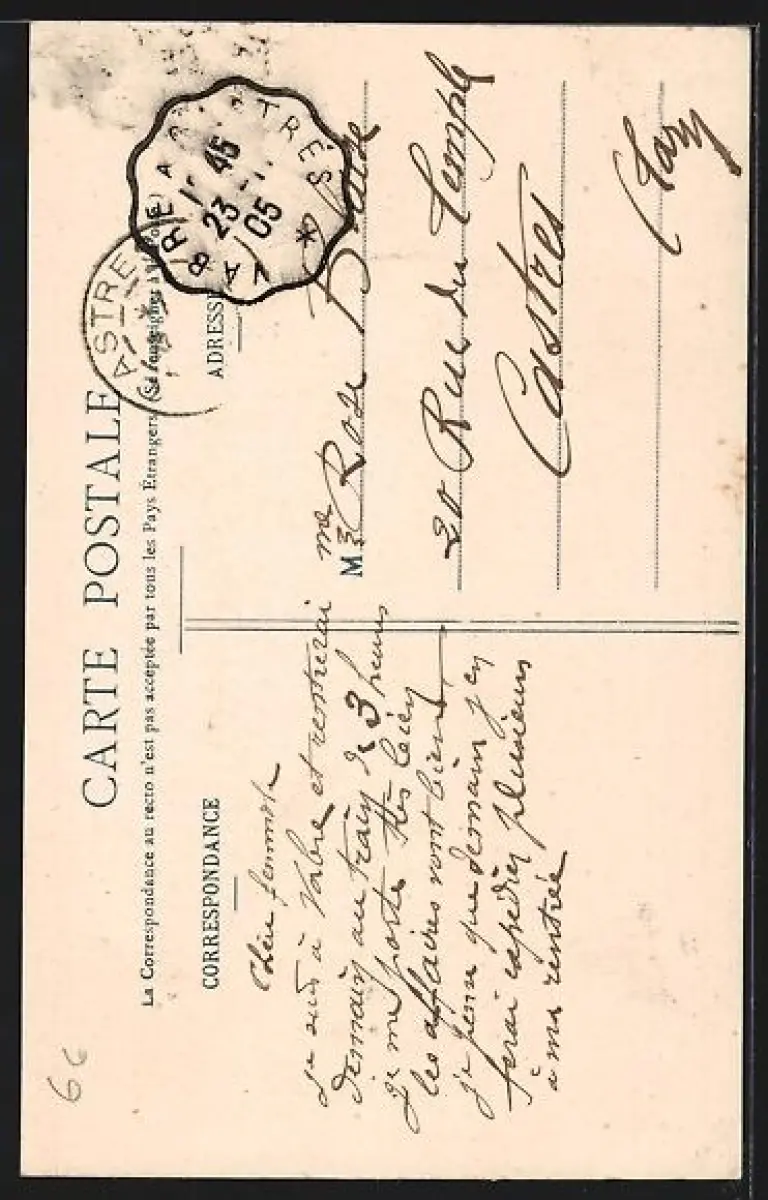 CARTE POSTALE
La Correspondance au recto n'est pas acceptée par tous les Pays Étrangers (Se renseigner à la Poste)
CORRESPONDANCE
Chère femme
Je suis à Vabre et rentrerai
demain au train de 3 heures
Je me porte très bien
les affaires vont bien
je pense que demain j'en
ferai expédier plusieurs
à ma rentrée
ADRESSE
M me Rose
20 Rue du Temple
Castres
Tarn
VABRE A CASTRES
1 45
23
05
ASTRE
6c